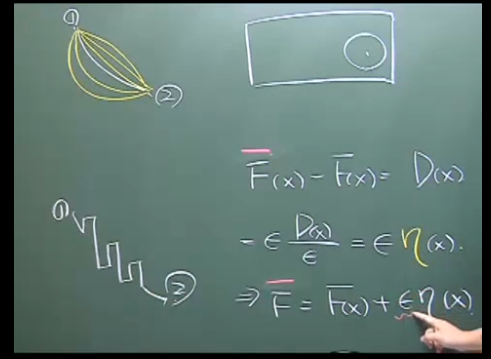 ①
②
F̅(x) - F̅(x) = D(x)
= ϵ D(x)/ϵ = ϵ η(x).
①
②
⇒ F̅ = F̅(x) + ϵη(x)